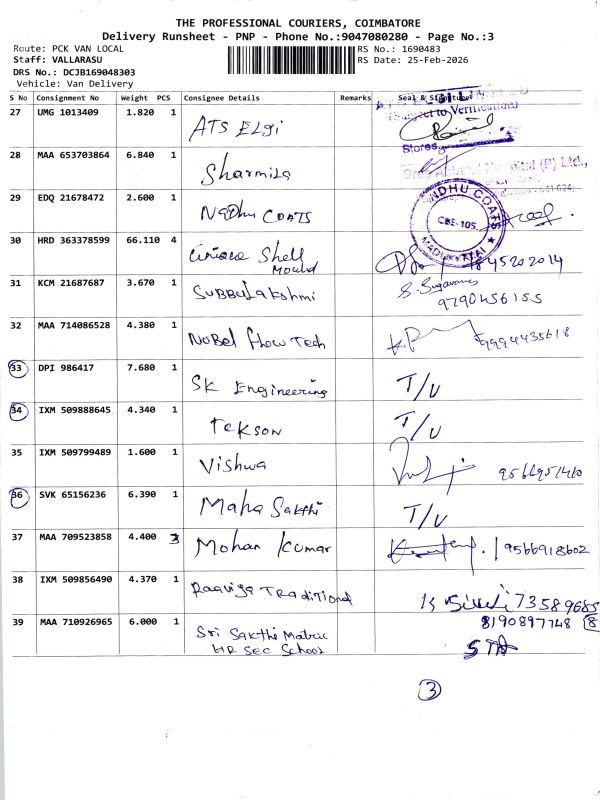 THE PROFESSIONAL COURIERS, COIMBATORE
Delivery Runsheet - PNP - Phone No.:9047080280 - Page No.:3
Route: PCK VAN LOCAL RS No.: 1690483
Staff: VALLARASU RS Date: 25-Feb-2026
DRS No.: DCJB169048303
Vehicle: Van Delivery
S No Consignment No Weight PCS Consignee Details Remarks Seal & Signature
27 UMG 1013409 1.820 1 ATS ELgi (Subject to Verification)
Stores
28 MAA 653703864 6.840 1 Sharmila
29 EDQ 21678472 2.600 1 Nadhu COATS CBE-105. MADUKKARAI
30 HRD 363378599 66.110 4 Shell
Mould
31 KCM 21687687 3.670 1 Subbulakshmi 9790456155
32 MAA 714086528 4.380 1 Nobel flow Tech 9994435618
33 DPI 986417 7.680 1 SK Engineering T/U
34 IXM 509888645 4.340 1 TEKSON T/U
35 IXM 509799489 1.600 1 Vishwa
36 SVK 65156236 6.390 1 Maha Sakthi T/U
37 MAA 709523858 4.400 3 Mohan Kumar 9566918602
38 IXM 509856490 4.370 1 Traditional 73589685
39 MAA 710926965 6.000 1 Sri Sakthi Matric 8190897748
HR Sec School
3